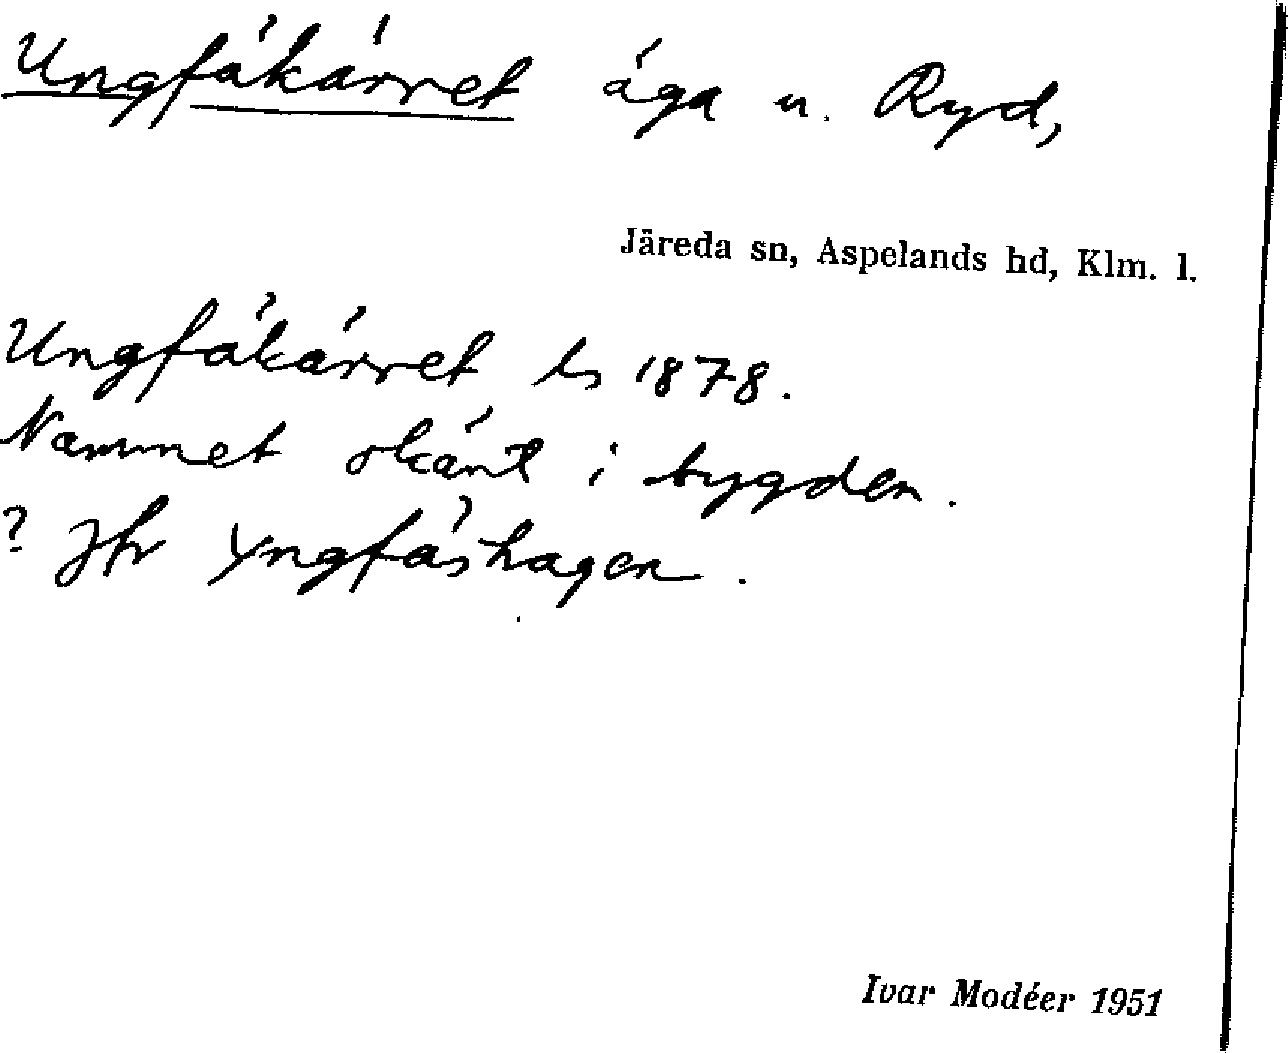 Ungfåkärret äga u. Ryd,
Järeda sn, Aspelands hd, Klm. l.
Ungfåkärret ls 1878.
Namnet okänt i bygden.
? Jfr Yngfåshagen.
Ivar Modéer 1951